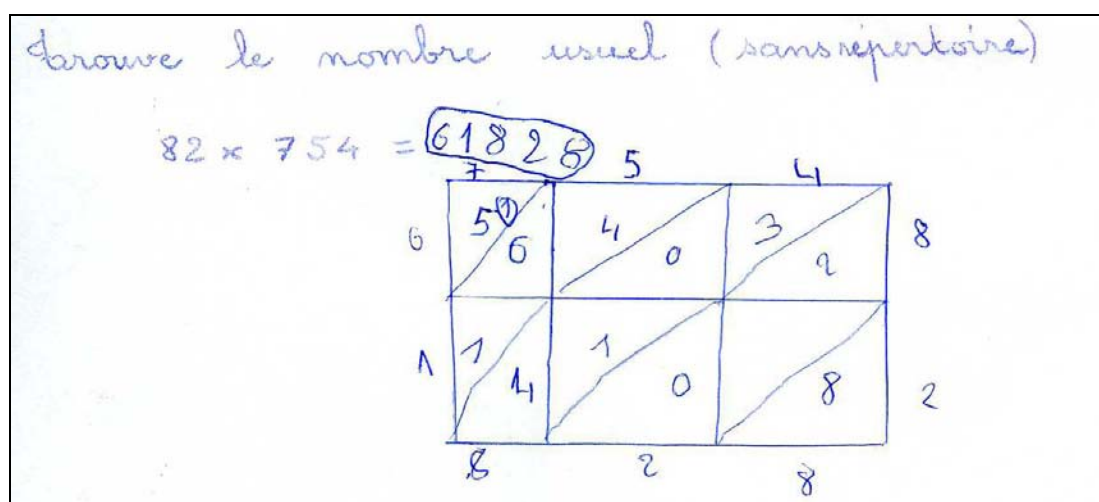 Trouve le nombre usuel (sans répertoire)
82 x 754 = 61828
7 5 4
6 5 1 6 4 0 3 2 8
1 1 4 1 0 8 2
8 2 8